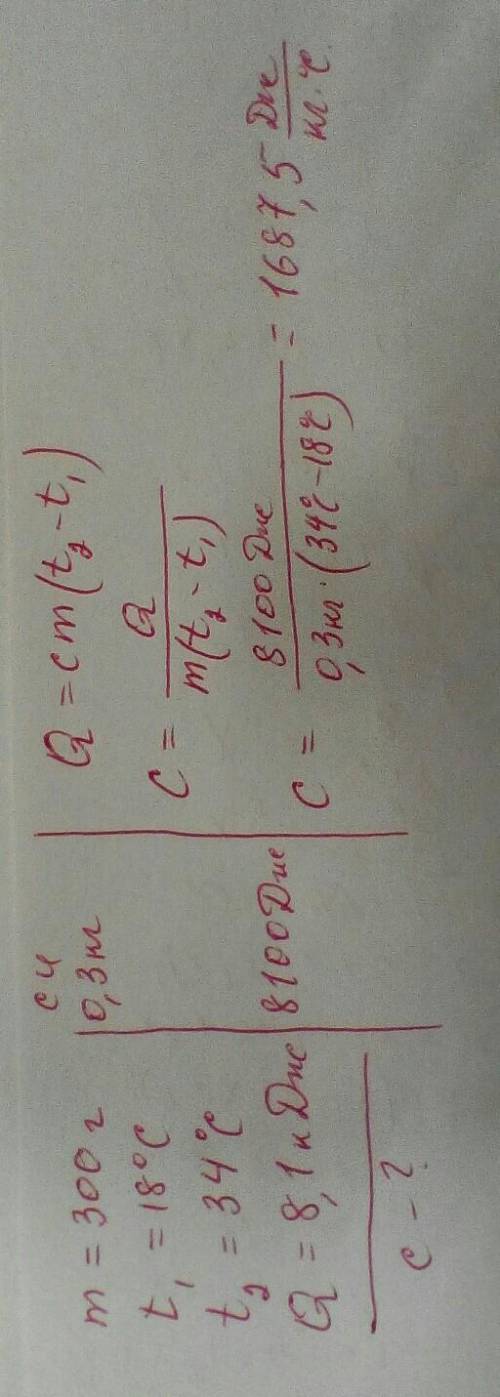 m = 300 г
t₁ = 18°C
t₂ = 34°C
Q = 8,1 кДж
c - ?
СИ
0,3 кг
8100 Дж
Q = cm(t₂ - t₁)
c = Q / m(t₂ - t₁)
c = 8100 Дж / 0,3 кг · (34°C - 18°C) = 1687,5 Дж / кг·°C